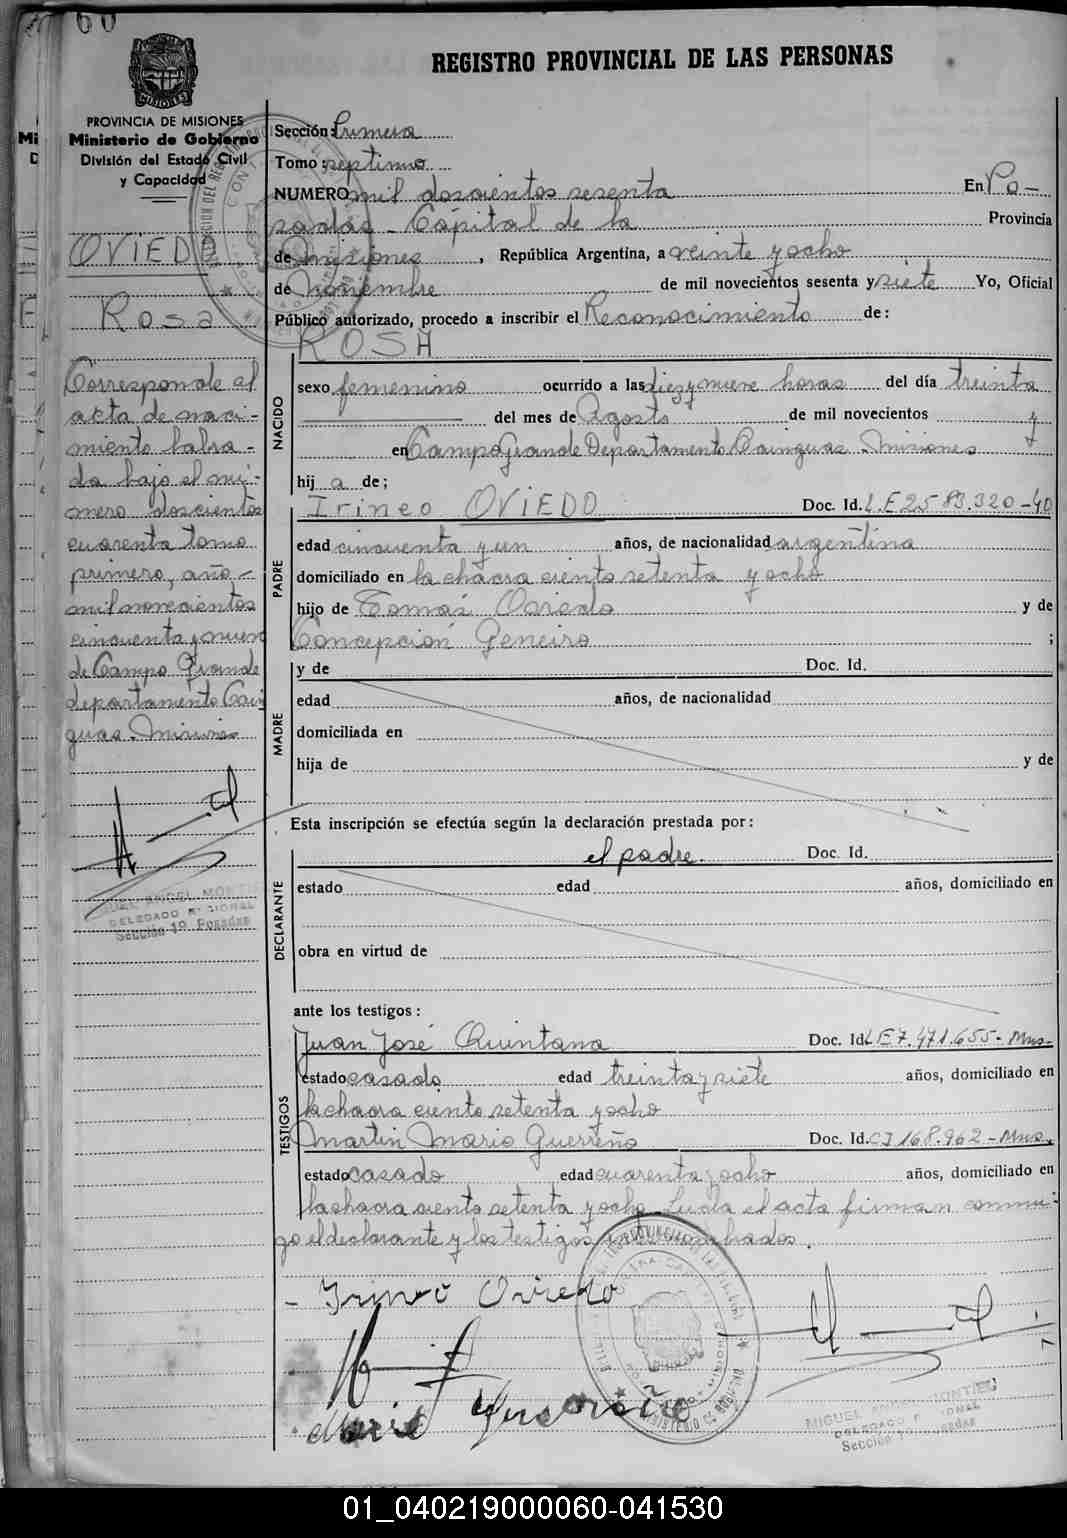 60
REGISTRO PROVINCIAL DE LAS PERSONAS
MISIONES
PROVINCIA DE MISIONES
Ministerio de Gobierno
División del Estado Civil
y Capacidad
OVIEDO
Rosa
Corresponde al
acta de naci-
miento labra-
da bajo el nú-
mero doscientos
cuarenta tomo
primero, año-
mil novecientos
cincuenta y nueve
de Campo Grande
departamento Cain
guas. Misiones
DELEGADO REGIONAL
Sección 1º Posadas
Sección: Primera
Tomo: septimo
NUMERO mil doscientos sesenta En Po-
sadas - Capital de la Provincia
de Misiones, República Argentina, a veinte y ocho
de Noviembre de mil novecientos sesenta y siete Yo, Oficial
Público autorizado, procedo a inscribir el Reconocimiento de:
ROSA
NACIDO
sexo femenino ocurrido a las diez y nueve horas del día treinta
del mes de Agosto de mil novecientos y
en Campo Grande Departamento Cainguas. Misiones
hij a de;
PADRE
Irineo OVIEDO Doc. Id. L.E 25 83.320-40
edad cincuenta y un años, de nacionalidad argentina
domiciliado en la chacra ciento setenta y ocho
hijo de Tomás Oviedo y de
Concepción Geneiro ;
MADRE
y de Doc. Id.
edad años, de nacionalidad
domiciliada en
hija de y de
Esta inscripción se efectúa según la declaración prestada por:
DECLARANTE
el padre. Doc. Id.
estado edad años, domiciliado en
obra en virtud de
ante los testigos:
TESTIGOS
Juan José Quintana Doc. Id. L E 7.471.655- Mns.
estado casado edad treinta y siete años, domiciliado en
la chacra ciento setenta y ocho
Martin Mario Guerreño Doc. Id. CI 168.962-Mns.
estado casado edad cuarenta y ocho años, domiciliado en
la chacra ciento setenta y ocho. Leida el acta firman conmi-
go el declarante y los testigos nombrados.
- Irineo Oviedo
MIGUEL ANGEL MONTIEL
DELEGADO REGIONAL
Sección 1º Posadas
01_040219000060-041530